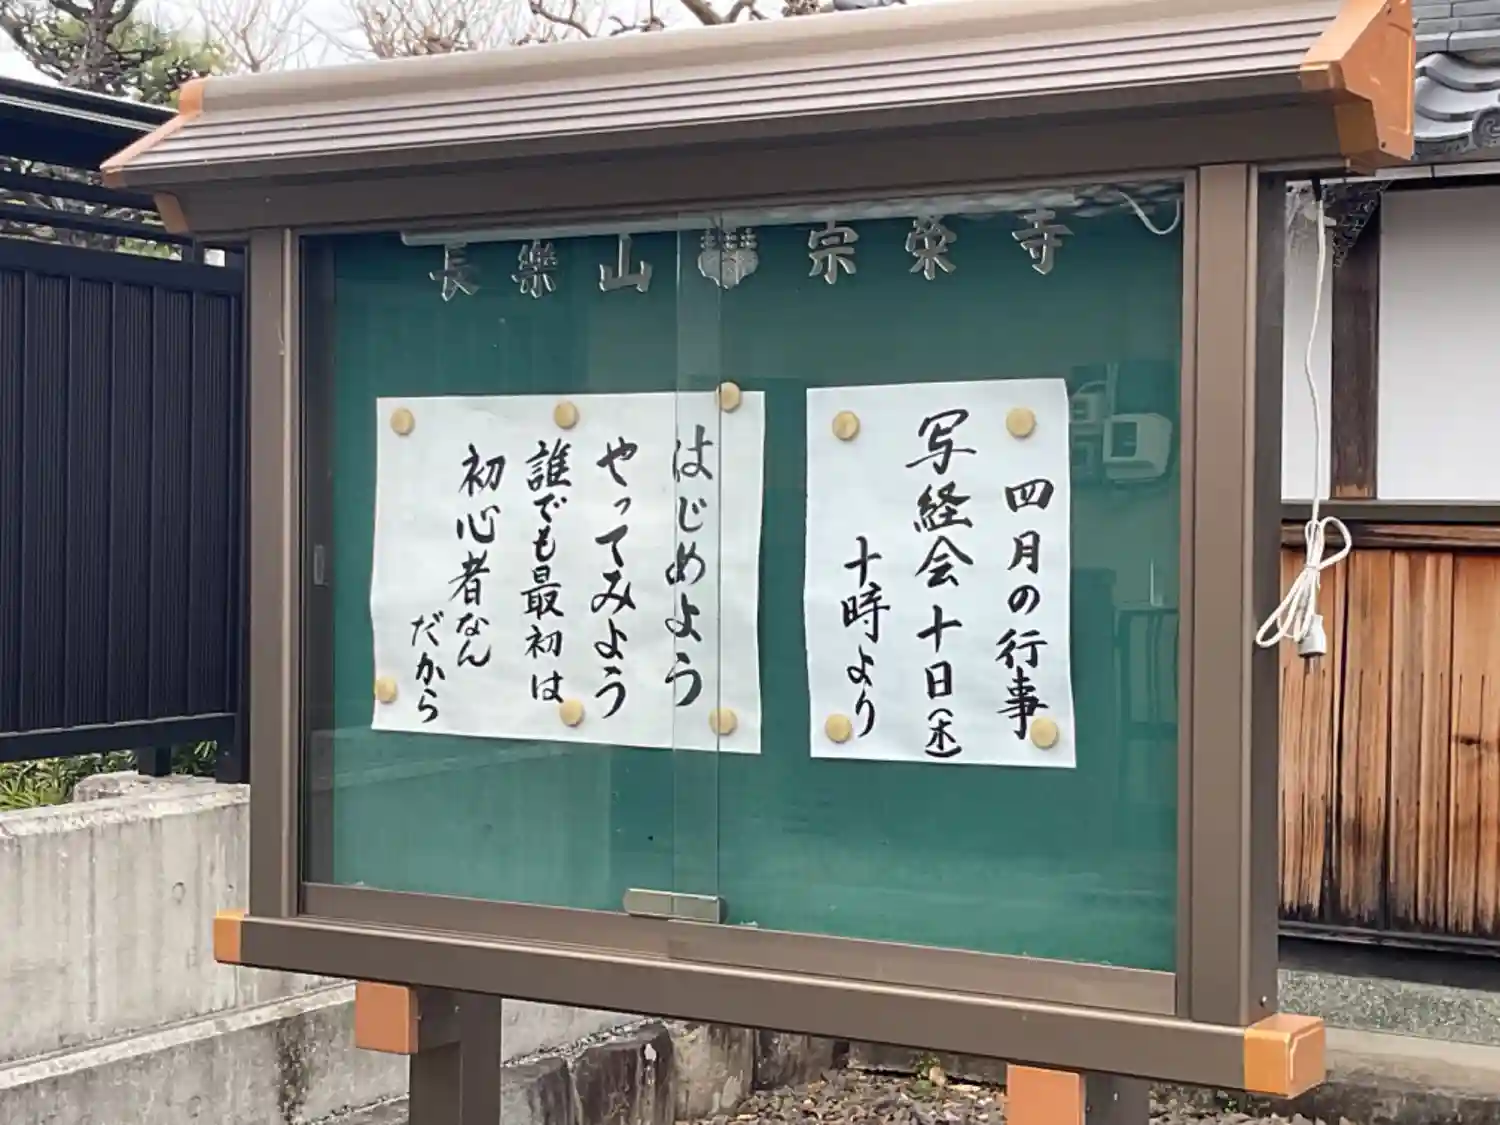 長樂山 宗栄寺
四月の行事
写経会十日(木)
十時より
はじめよう
やってみよう
誰でも最初は
初心者なん
だから